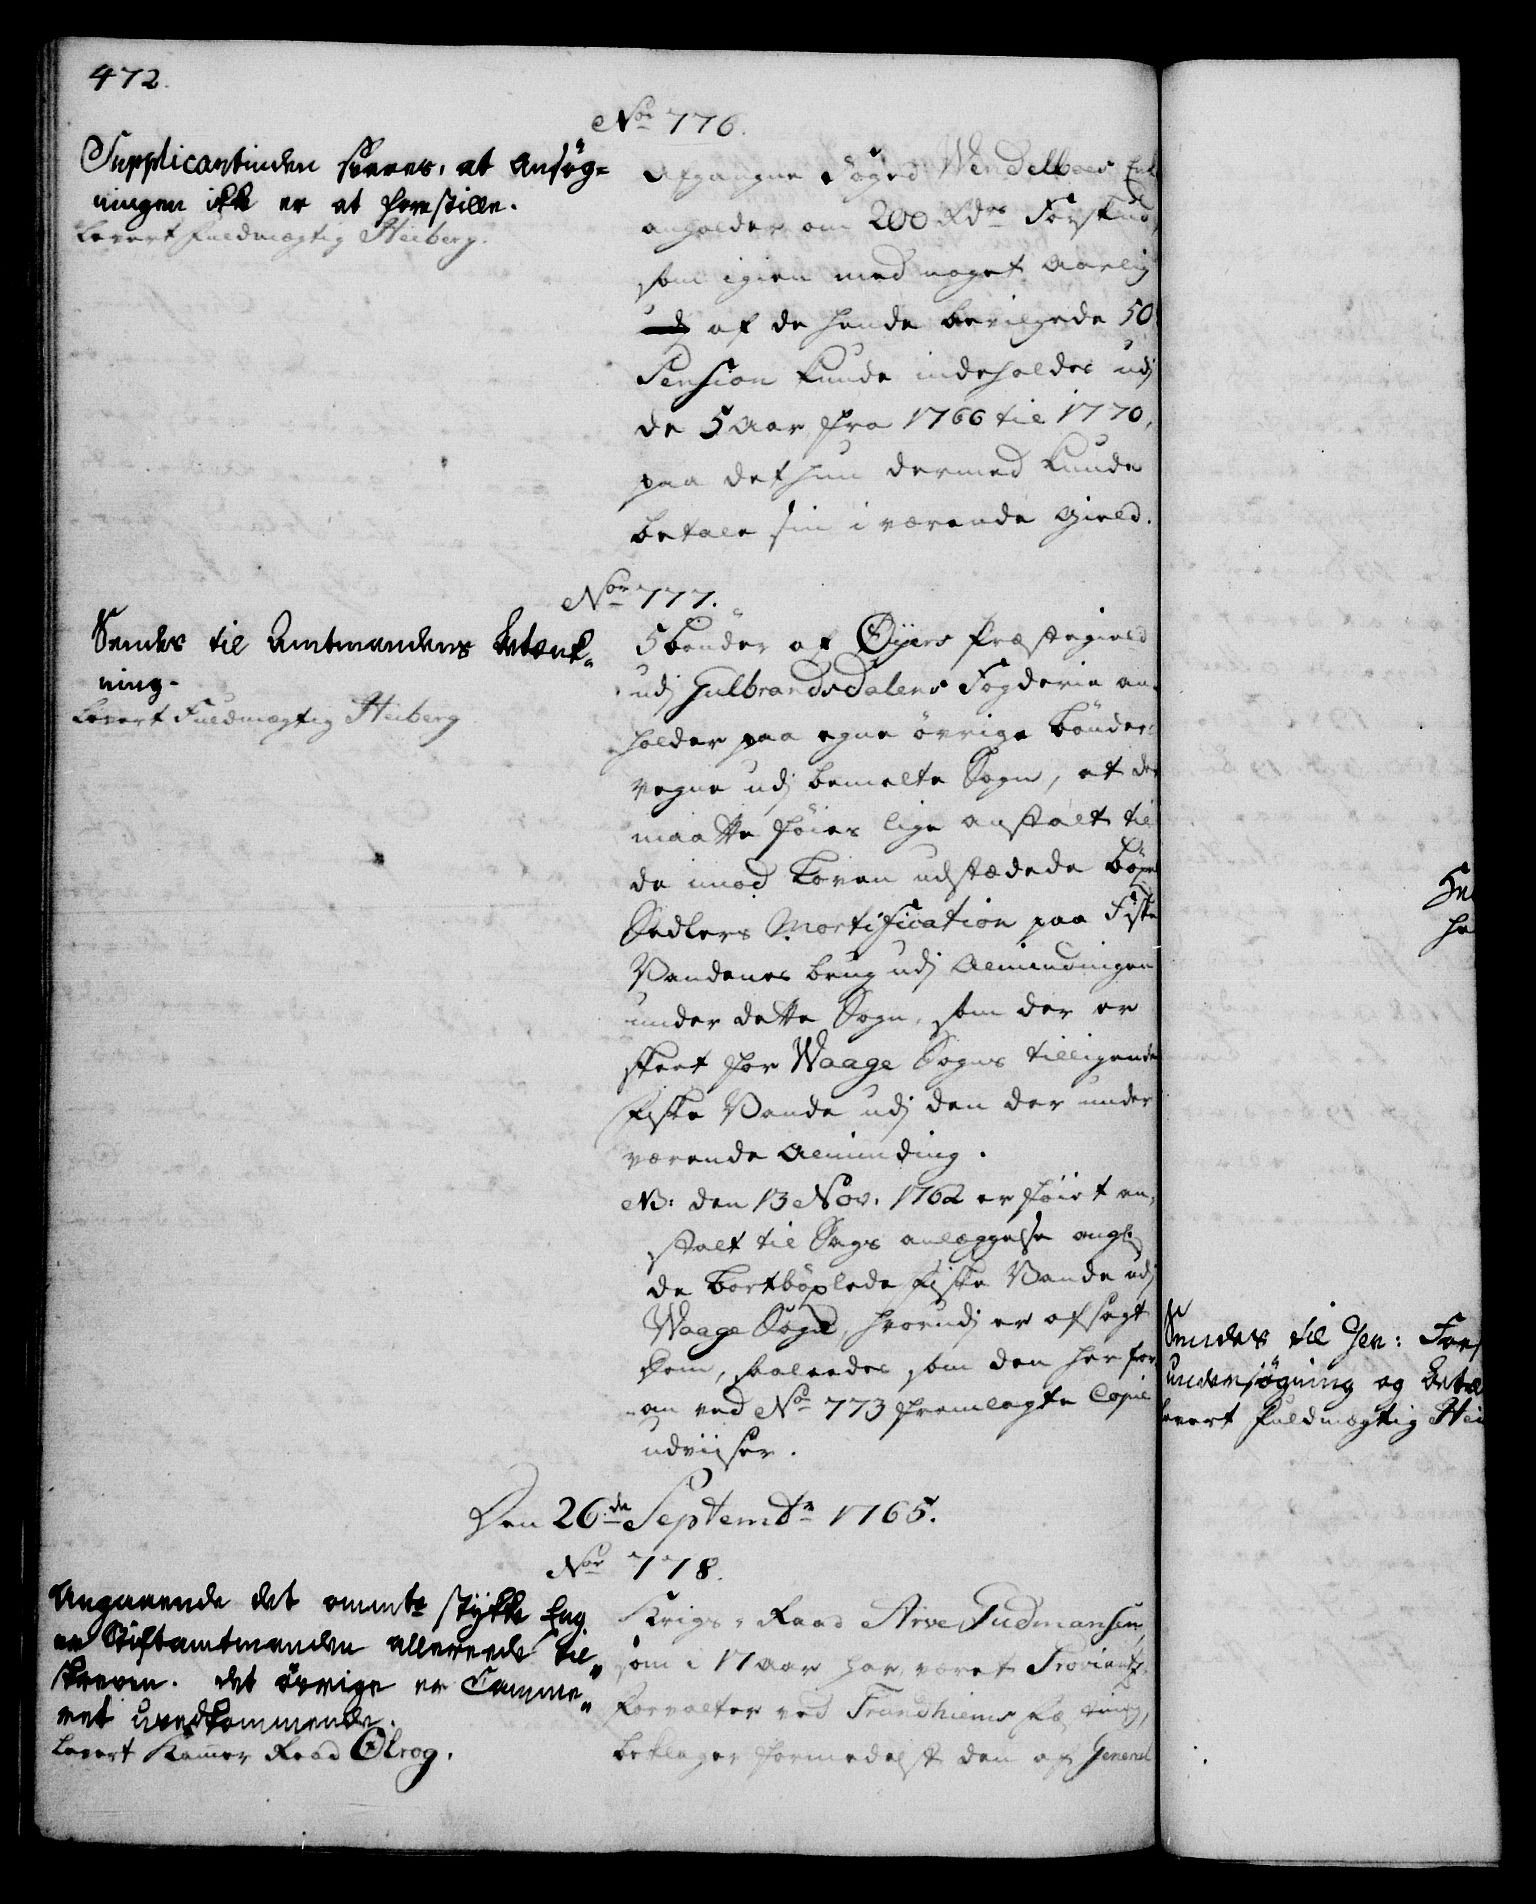 472.
No 776.
Supplicantinden svares, at Ansøg-
ningen ikke er at forestille.
Levert Fuldmægtig Heiberg.
Afgangne Foged Wendelboes Enke
anholder om 200 Rdr Forskud,
som igien med noget Aarlig
af de hende bevilgede 50
Pension kunde indeholdes udj
de 5 Aar fra 1766 til 1770,
paa det hun dermed kunde
betale sin i værende Gield.
No 777.
Sendes til Amtmandens Betænk-
ning.
Levert Fuldmægtig Heiberg
5 Bönder af Öyers Præstegield
udj Gulbrandsdalens Fogderie an-
holder paa egne övrige Bönders
vegne udj bemelte Sogn, at der
maatte föies lige anstalt til
de imod Loven udstædede Böxel
Sedlers Mortification paa Fiske
Vandenes brug udj Almindingen
under dette Sogn, som der er
skeet for Waage Sogns tilligende
Fiske Vande udj den der under
værende Alminding.
NB: den 13 Nov. 1762 er föiet an-
stalt til Sags anlæggelse angl.
de bortböxlede Fiske Vande udj
Waage Sogn, hvorudj er afsagt
Dom, saaledes som den her for-
an ved No 773 fremlagte Copie
udviiser.
Den 26.de Septembr 1765.
No 778.
Angaaende det ommte stykke Eng,
er Stiftamtmanden allereede til-
skreven. Det övrige er Camme-
ret uvedkommende.
Levert Kammer Raad Olrog.
Krigs-Raad Arve Gudmansen,
som i 17 Aar har været Proviant-
Forvalter ved Trundhiems Fæstning,
beklager formedelst den af General
Sendes til Gen: Forst
undersögning og Betæ
Levert Fuldmægtig Hei